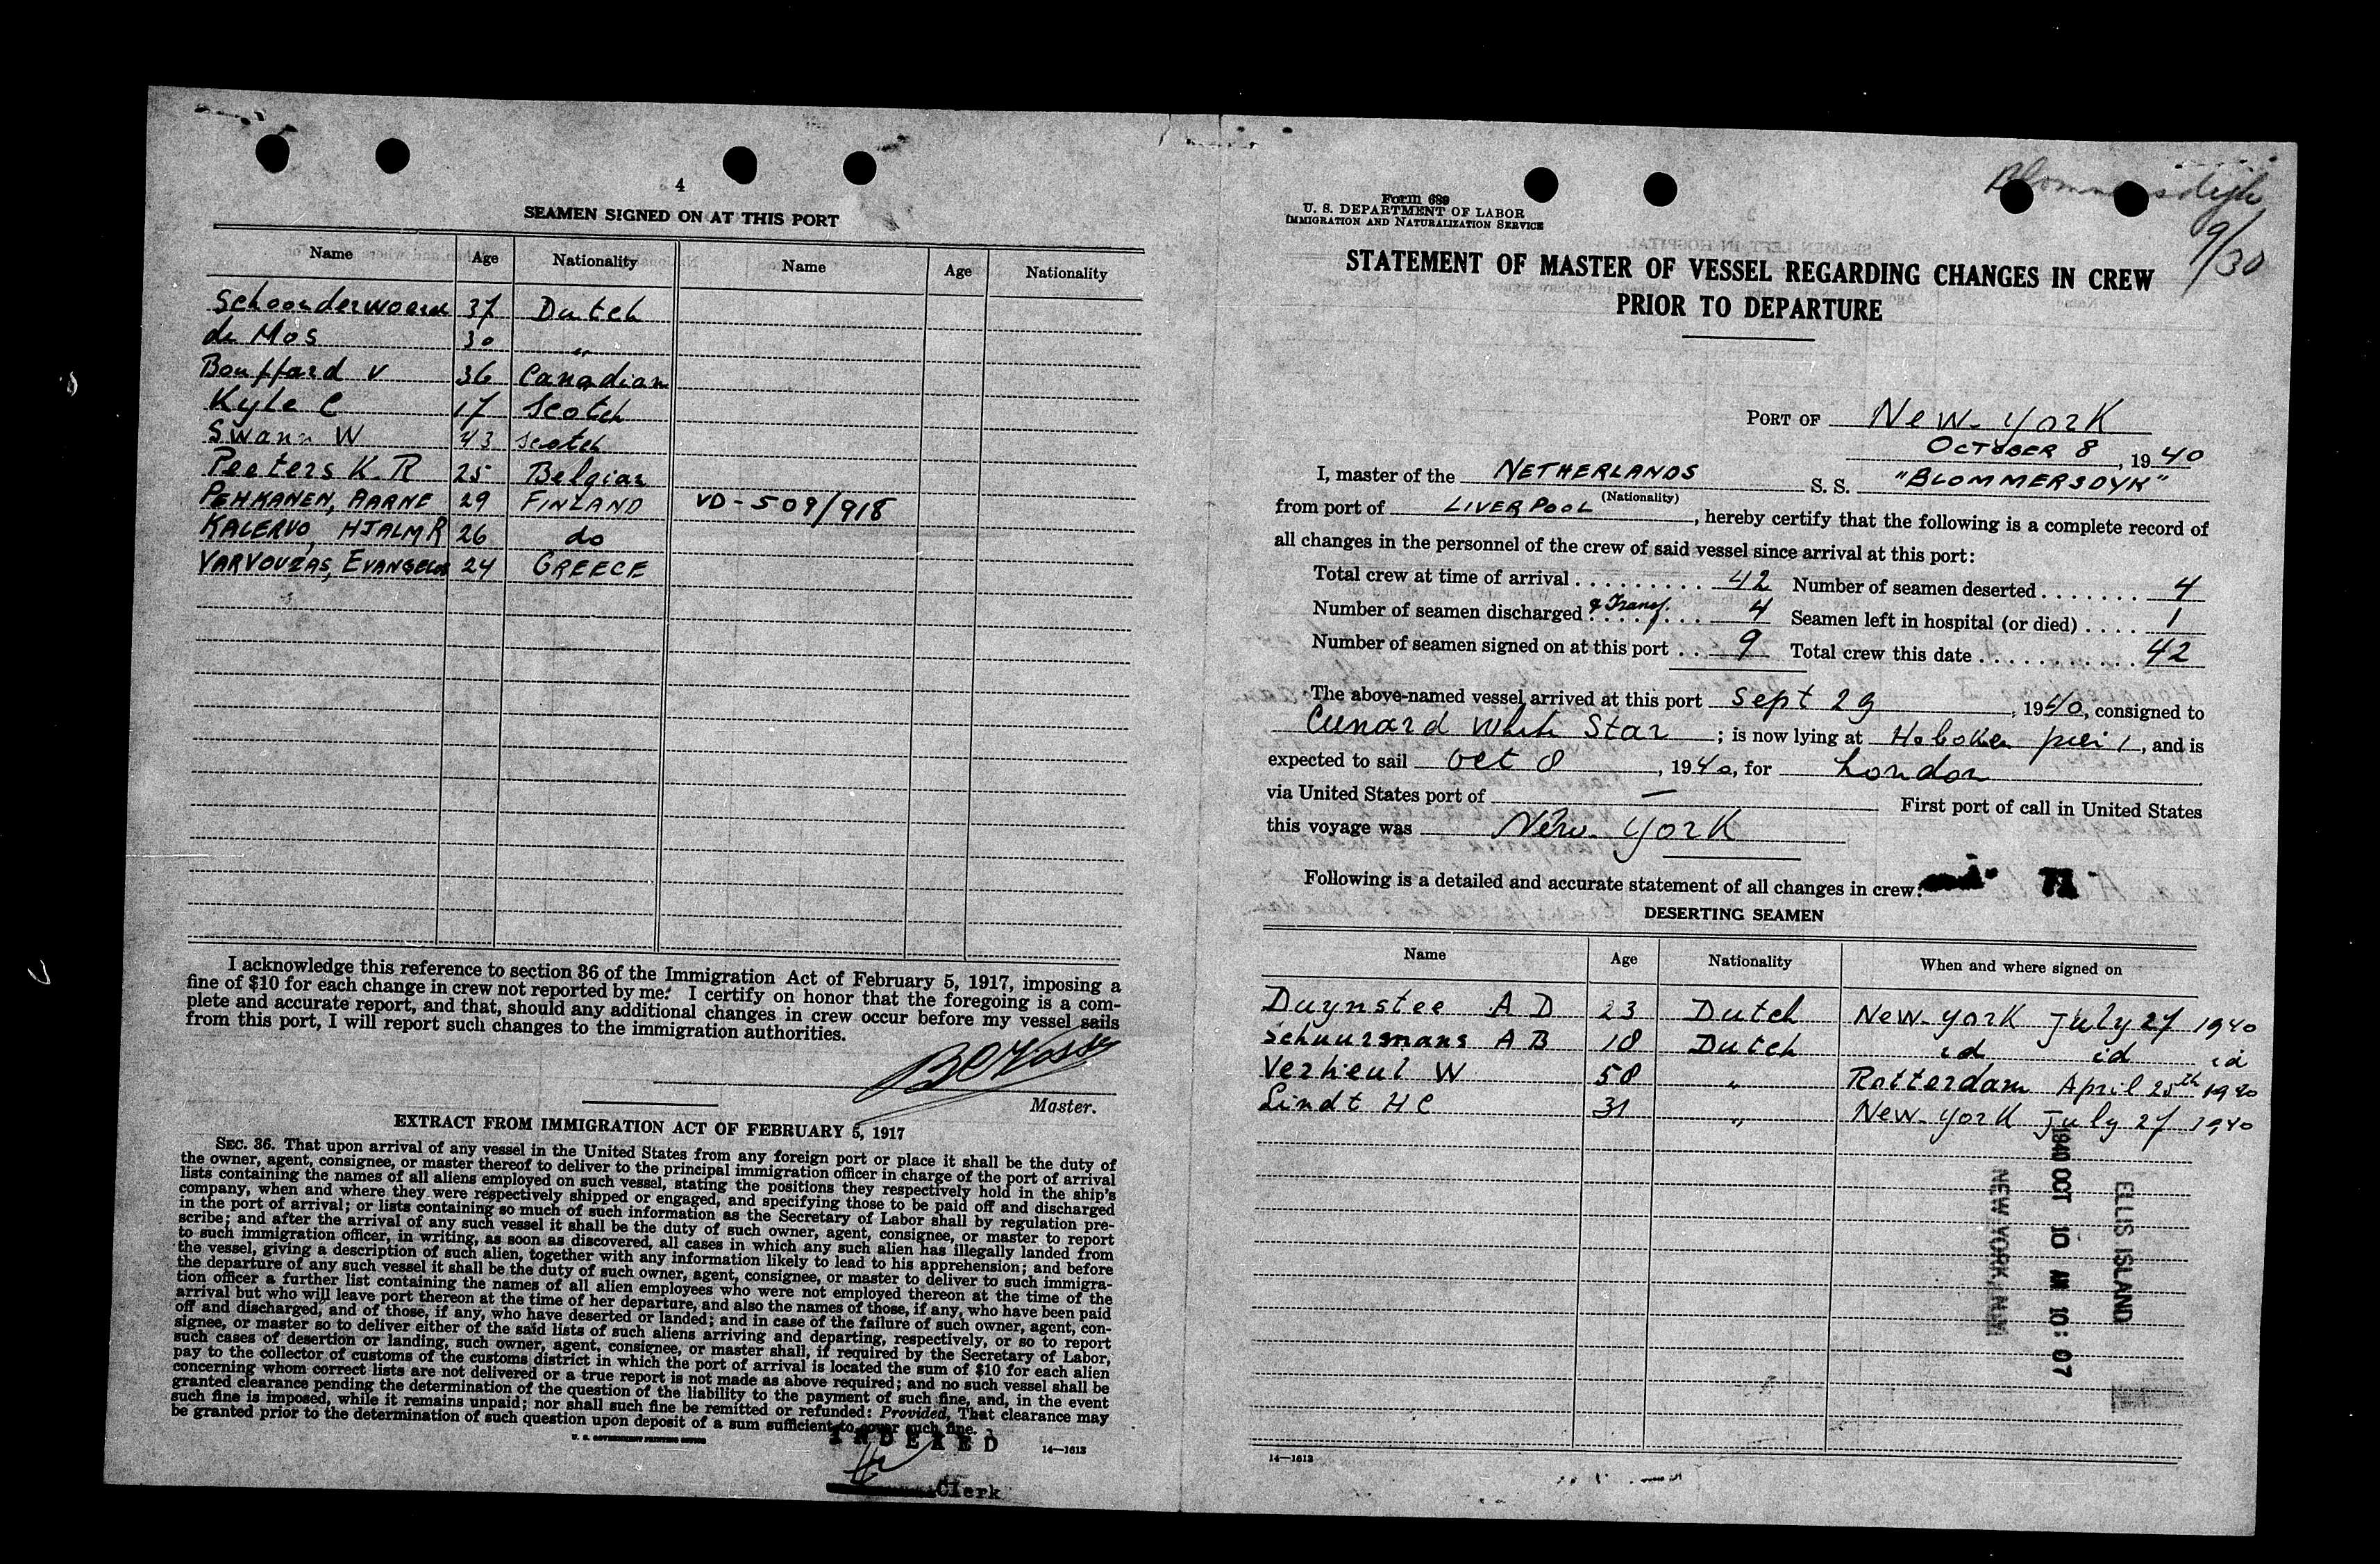 4
SEAMEN SIGNED ON AT THIS PORT
Name Age Nationality Name Age Nationality
Schoonderwoerd 37 Dutch
de Mos 30 "
Bouffard V 36 Canadian
Kyle C 17 Scotch
Swann W 43 Scotch
Peeters K. R 25 Belgian
PEHKANEN, AARNE 29 FINLAND VD-509/918
KALERVO, HJALMR 26 do
VARVOUZAS, EVANGELOS 24 GREECE
I acknowledge this reference to section 36 of the Immigration Act of February 5, 1917, imposing a
fine of $10 for each change in crew not reported by me. I certify on honor that the foregoing is a com-
plete and accurate report, and that, should any additional changes in crew occur before my vessel sails
from this port, I will report such changes to the immigration authorities.
Master.
EXTRACT FROM IMMIGRATION ACT OF FEBRUARY 5, 1917
SEC. 36. That upon arrival of any vessel in the United States from any foreign port or place it shall be the duty of
the owner, agent, consignee, or master thereof to deliver to the principal immigration officer in charge of the port of arrival
lists containing the names of all aliens employed on such vessel, stating the positions they respectively hold in the ship's
company, when and where they were respectively shipped or engaged, and specifying those to be paid off and discharged
in the port of arrival; or lists containing so much of such information as the Secretary of Labor shall by regulation pre-
scribe; and after the arrival of any such vessel it shall be the duty of such owner, agent, consignee, or master to report
to such immigration officer, in writing, as soon as discovered, all cases in which any such alien has illegally landed from
the vessel, giving a description of such alien, together with any information likely to lead to his apprehension; and before
the departure of any such vessel it shall be the duty of such owner, agent, consignee, or master to deliver to such immigra-
tion officer a further list containing the names of all alien employees who were not employed thereon at the time of the
arrival but who will leave port thereon at the time of her departure, and also the names of those, if any, who have been paid
off and discharged, and of those, if any, who have deserted or landed; and in case of the failure of such owner, agent, con-
signee, or master so to deliver either of the said lists of such aliens arriving and departing, respectively, or so to report
such cases of desertion or landing, such owner, agent, consignee, or master shall, if required by the Secretary of Labor,
pay to the collector of customs of the customs district in which the port of arrival is located the sum of $10 for each alien
concerning whom correct lists are not delivered or a true report is not made as above required; and no such vessel shall be
granted clearance pending the determination of the question of the liability to the payment of such fine, and, in the event
such fine is imposed, while it remains unpaid; nor shall such fine be remitted or refunded: Provided, That clearance may
be granted prior to the determination of such question upon deposit of a sum sufficient to cover such fine.
U. S. GOVERNMENT PRINTING OFFICE 14—1613
INDEXED
Clerk
Blommersdijk
9/30
Form 689
U. S. DEPARTMENT OF LABOR
IMMIGRATION AND NATURALIZATION SERVICE
STATEMENT OF MASTER OF VESSEL REGARDING CHANGES IN CREW
PRIOR TO DEPARTURE
PORT OF New-York
OCTOBER 8, 1940
I, master of the NETHERLANDS S. S. "BLOMMERSDYK"
(Nationality)
from port of LIVERPOOL, hereby certify that the following is a complete record of
all changes in the personnel of the crew of said vessel since arrival at this port:
Total crew at time of arrival 42 Number of seamen deserted 4
Number of seamen discharged & Transf. 4 Seamen left in hospital (or died) 1
Number of seamen signed on at this port 9 Total crew this date 42
The above-named vessel arrived at this port Sept 29, 1940, consigned to
Cunard White Star; is now lying at Hoboken pier 1, and is
expected to sail Oct 8, 1940, for London
via United States port of — First port of call in United States
this voyage was New-York
Following is a detailed and accurate statement of all changes in crew:
DESERTING SEAMEN
Name Age Nationality When and where signed on
Duynstee A D 23 Dutch New-York July 27 1940
Schuurmans A B 18 Dutch id id id
Verheul W 58 " Rotterdam April 25th 1940
Lindt H C 31 " New-York July 27 1940
ELLIS ISLAND
1940 OCT 10 AM 10:07
NEW YORK, N.Y.
14—1613